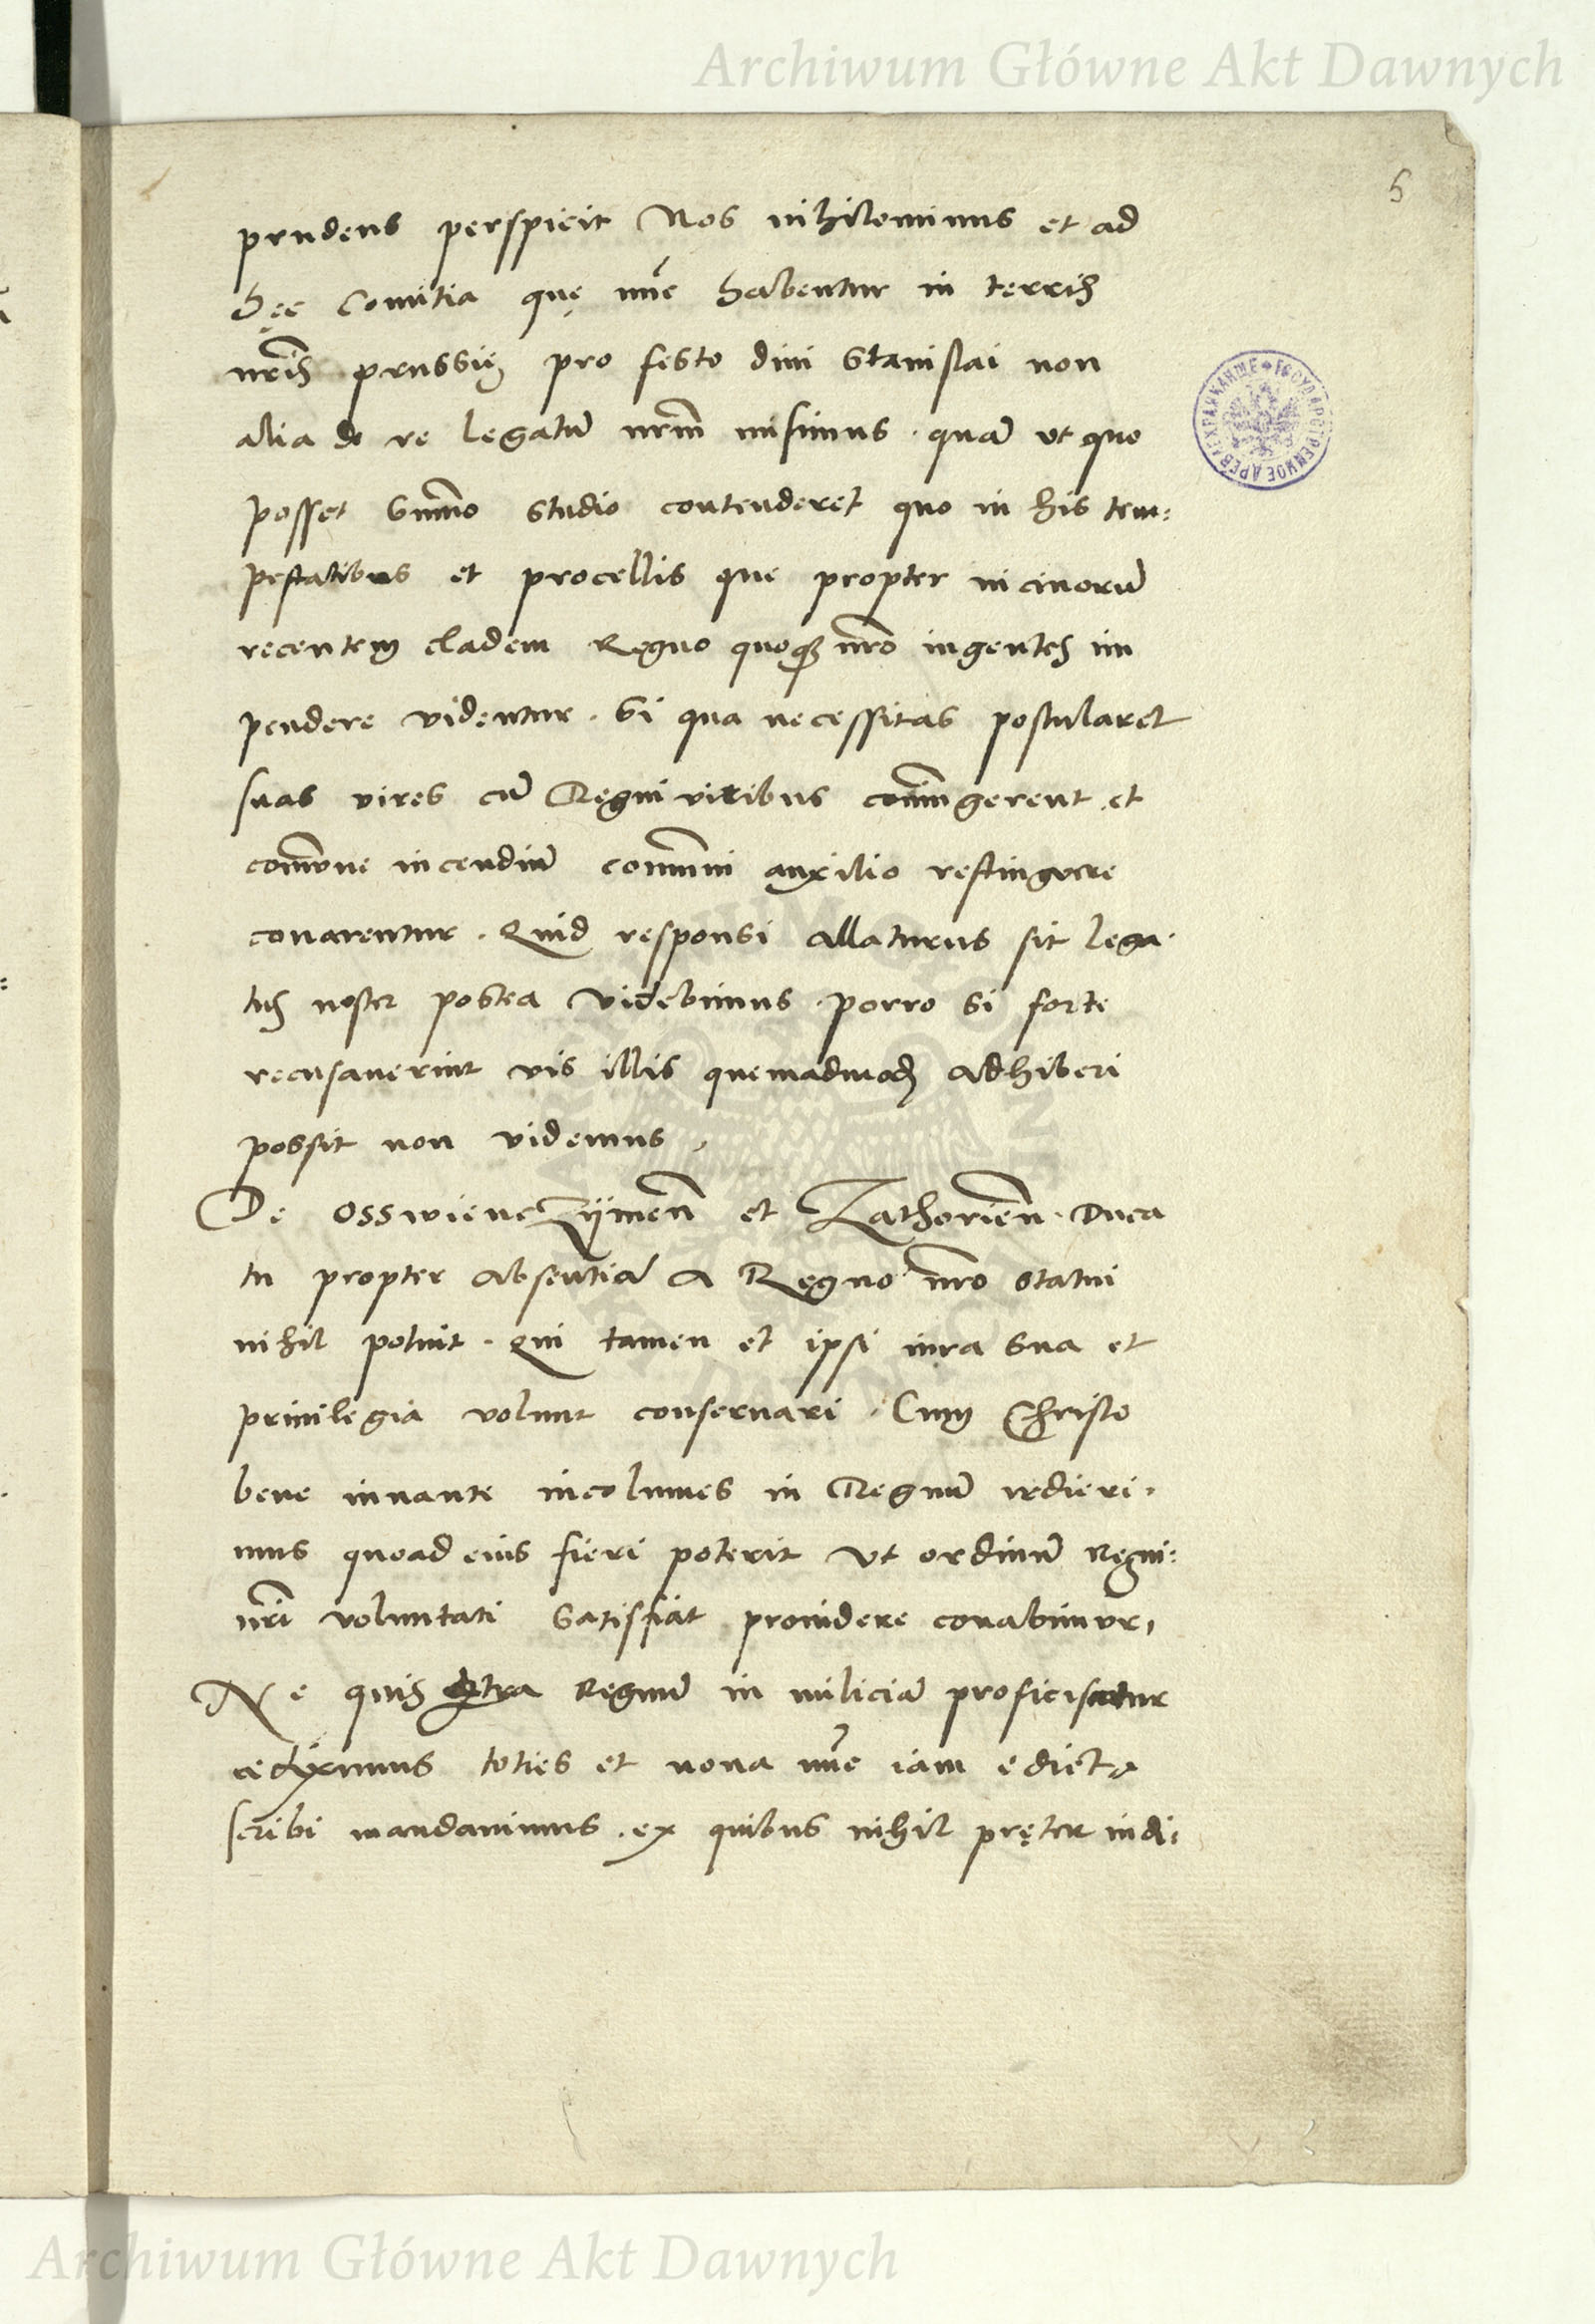 Archiwum Główne Akt Dawnych
5
prudens perspicit Nos nihilominus et ad
hęc Comitia quę nūc habentur in terris
nr̃is prussię pro festo diui Stanislai non
alia de re legatũ nr̃m misimus . quã ut quo
posset sum̃o studio contenderet quo in his tem:
pestatibus et procellis que propter uicinorũ
recentem cladem Regno quoqꝫ nr̃o ingentes im
pendere videntur . si qua necessitas postularet
suas vires cũ Regni viribus coniũgerent et
com̃une incendiũ com̃uni auxilio restinguere
conarentur . Quid responsi allaturus sit lega-
tus noster postea videbimus . porro si forte
recusauerint vis illis quemadmodũ adhiberi
possit non videmus ,
De Osswienczÿmeñ et Zathorieñ . Duca
tu propter absentiã a Regno nr̃o statui
nihil potuit . qui tamen et ipsi iura sua et
priuilegia volunt conseruari . Cum Christo
bene iuuante incolumes in Regnũ redieri-
mus quoad eius fieri poterit ut ordinũ Regni:
nr̃i voluntati satisfiat prouidere conabimur,
Ne quis extra Regnũ in miliciã proficiscatur
ediximus toties et noua nũc iam edicta
scribi mandauimus . ex quibus nihil pręter indi:
Archiwum Główne Akt Dawnych